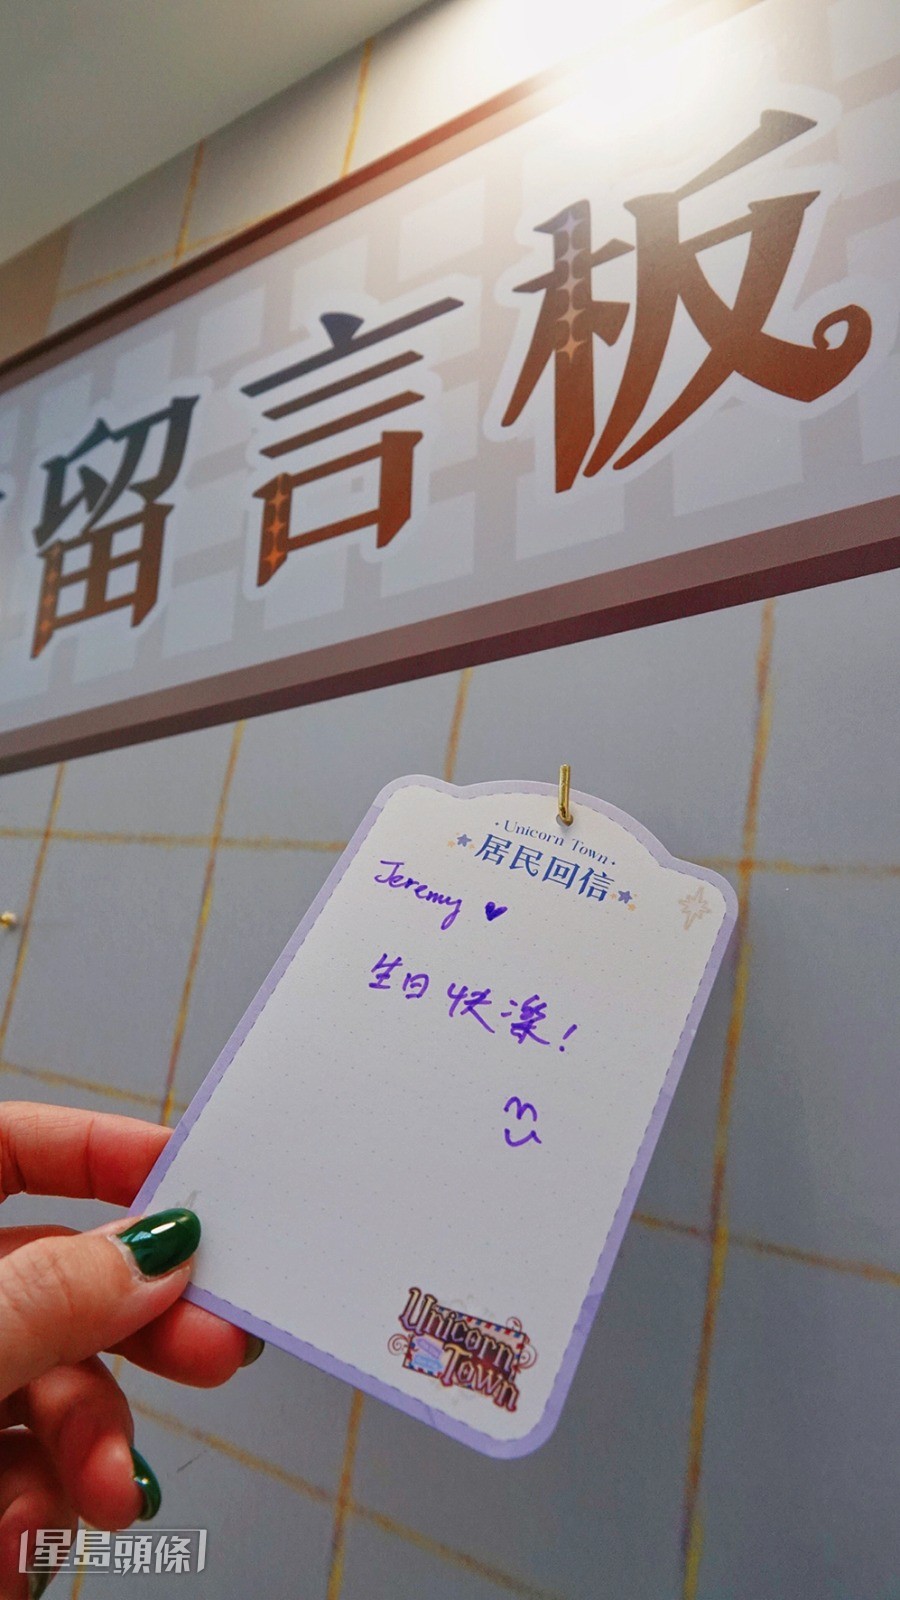 留言板
Unicorn Town
居民回信
Jeremy
生日快樂!
Unicorn
Town
星島頭條